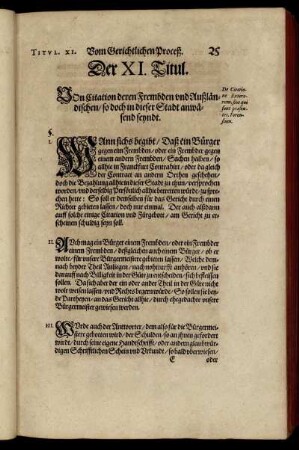 TITVL. XI. Vom Gerichtlichen Proceß. 25
Der XI. Titul.
VOn Citation deren Frembden vnd Außlän-
dischen / so doch in dieser Stadt anwä-
send seyndt.
De Citatio-
ne Extero-
rum,
§.
I. WAnn sichs begibt / Daß ein Bürger
gegen ein Frembden / oder ein Frembder gegen
einem andern Frembden / Sachen halben / so
allhie in Franckfurt Contrahirt / oder da gleich
der Contract an andern Orthen geschehen /
doch die Bezahlung allhie in dieser Stadt zu thun / versprochen
worden / und derselbig Persönlich allhie betretten würde / zusprechen
hette: So soll er denselben für das Gericht durch einen
Richter gebieten lassen / doch nur einmal. Der auch alßdann
auff solche einige Citation und Fürgebott / am Gericht zu er-
scheinen schuldig seyn soll.
II. AUch mag ein Bürger einen Frembden / oder ein Frembder
einem Frembden / deßgleichen auch einem Bürger / ob er
wolte / für unsere Bürgermeistere gebieten lassen / Welche dem-
nach beyder Theil Anligen / nach notturfft anhören / und sie
darauff nach Billigkeit in der Güte zu entscheiden / sich befleissen
sollen. Da sich aber der ein oder ander Theil in der Güte nicht
wolt weisen lassen / und Rechts begeren würde / So sollen sie bey-
de Partheyen / an das Gericht allhie / durch ehegedachte unsere
Bürgermeister gewiesen werden.
III. WÜrde auch der Antworter / dem also für die Bürgermei-
stere gebotten wird / der Schulden / so an ihnen gefordert
wurde / durch seine eigne Handtschrifft / oder andern glaubwür-
digen Schrifftlichen Schein und Urkunde / so bald überwiesen /
E oder